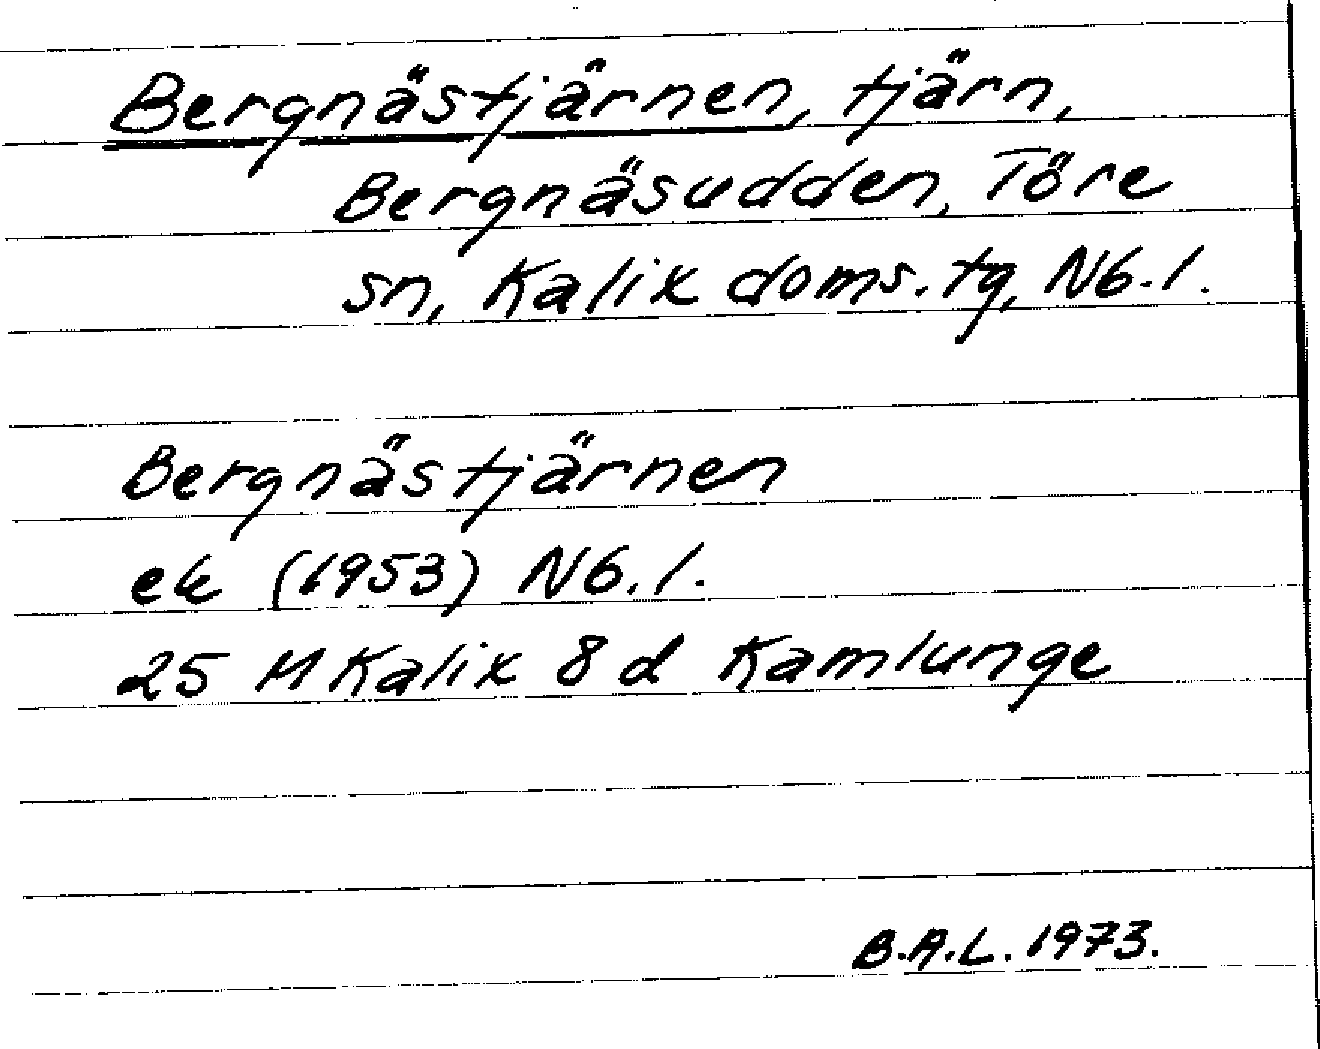 Bergnästjärnen, tjärn,
Bergnäsudden, Töre
sn, Kalix doms. tg, Nb. l.
Bergnästjärnen
ek (1953) Nb. l.
25 M Kalix 8 d Kamlunge
B.A.L. 1973.